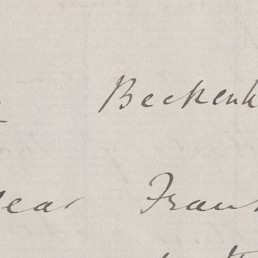 Beckenh
ear Fran